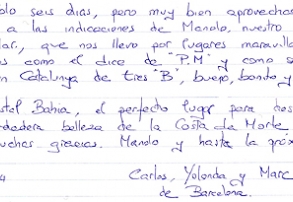 olo seis días, pero muy bien aprovechas
a las indicaciones de Manolo, nuestro
lar, que nos llevo por lugares maravilla
s como el dice de "P.M" y como s
n Catalunya de tres "B", bueno, bonito y
stal Bahia, el perfecto lugar para
dadera belleza de la Costa da Morte
uchas gracias. Manolo y hasta la próx
Carlos, Yolanda y Marc
de Barcelona.